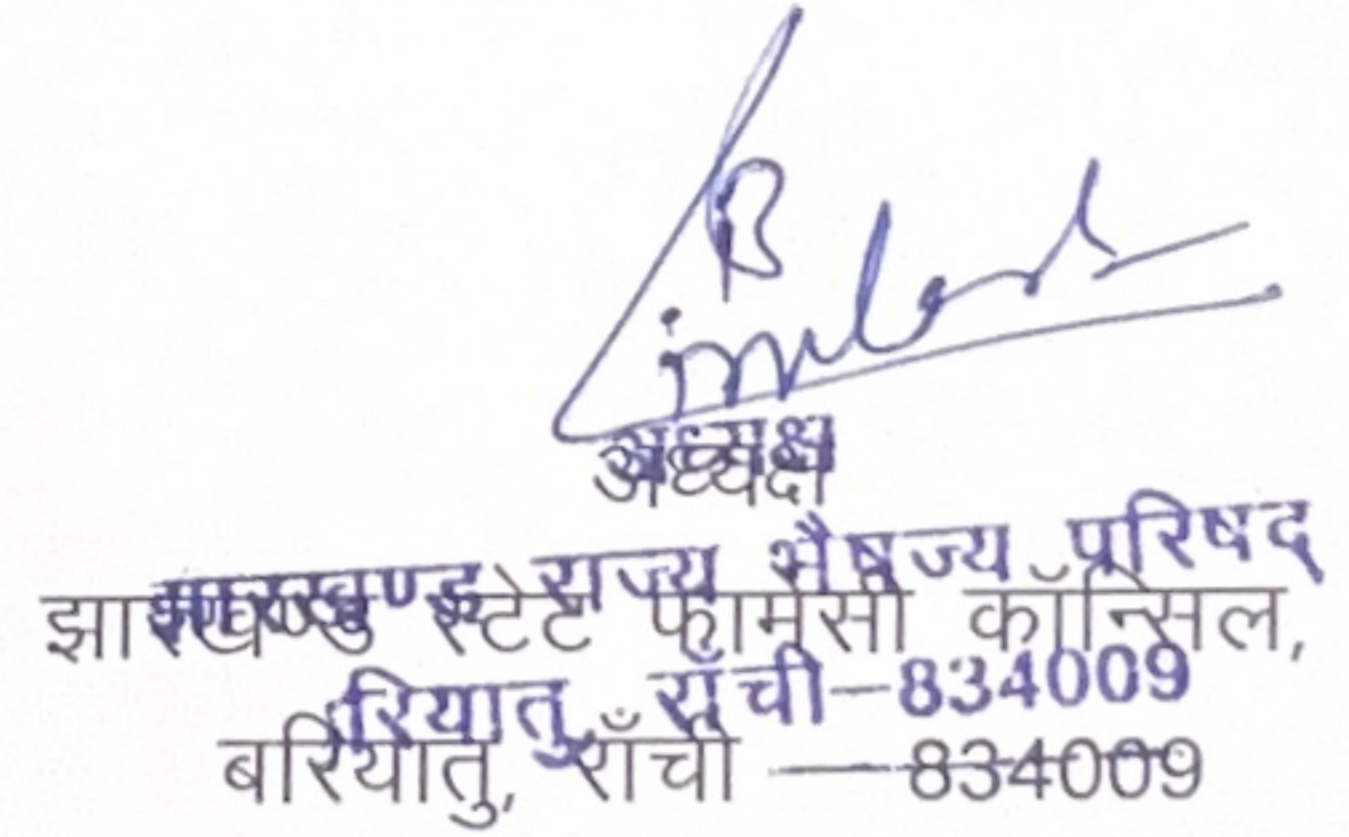 अध्यक्ष
अध्यक्ष
झारखण्ड राज्य भैषज्य परिषद्
झारखण्ड स्टेट फार्मेसी कॉन्सिल,
रियातु, राँची-834009
बरियातु, राँची — 834009